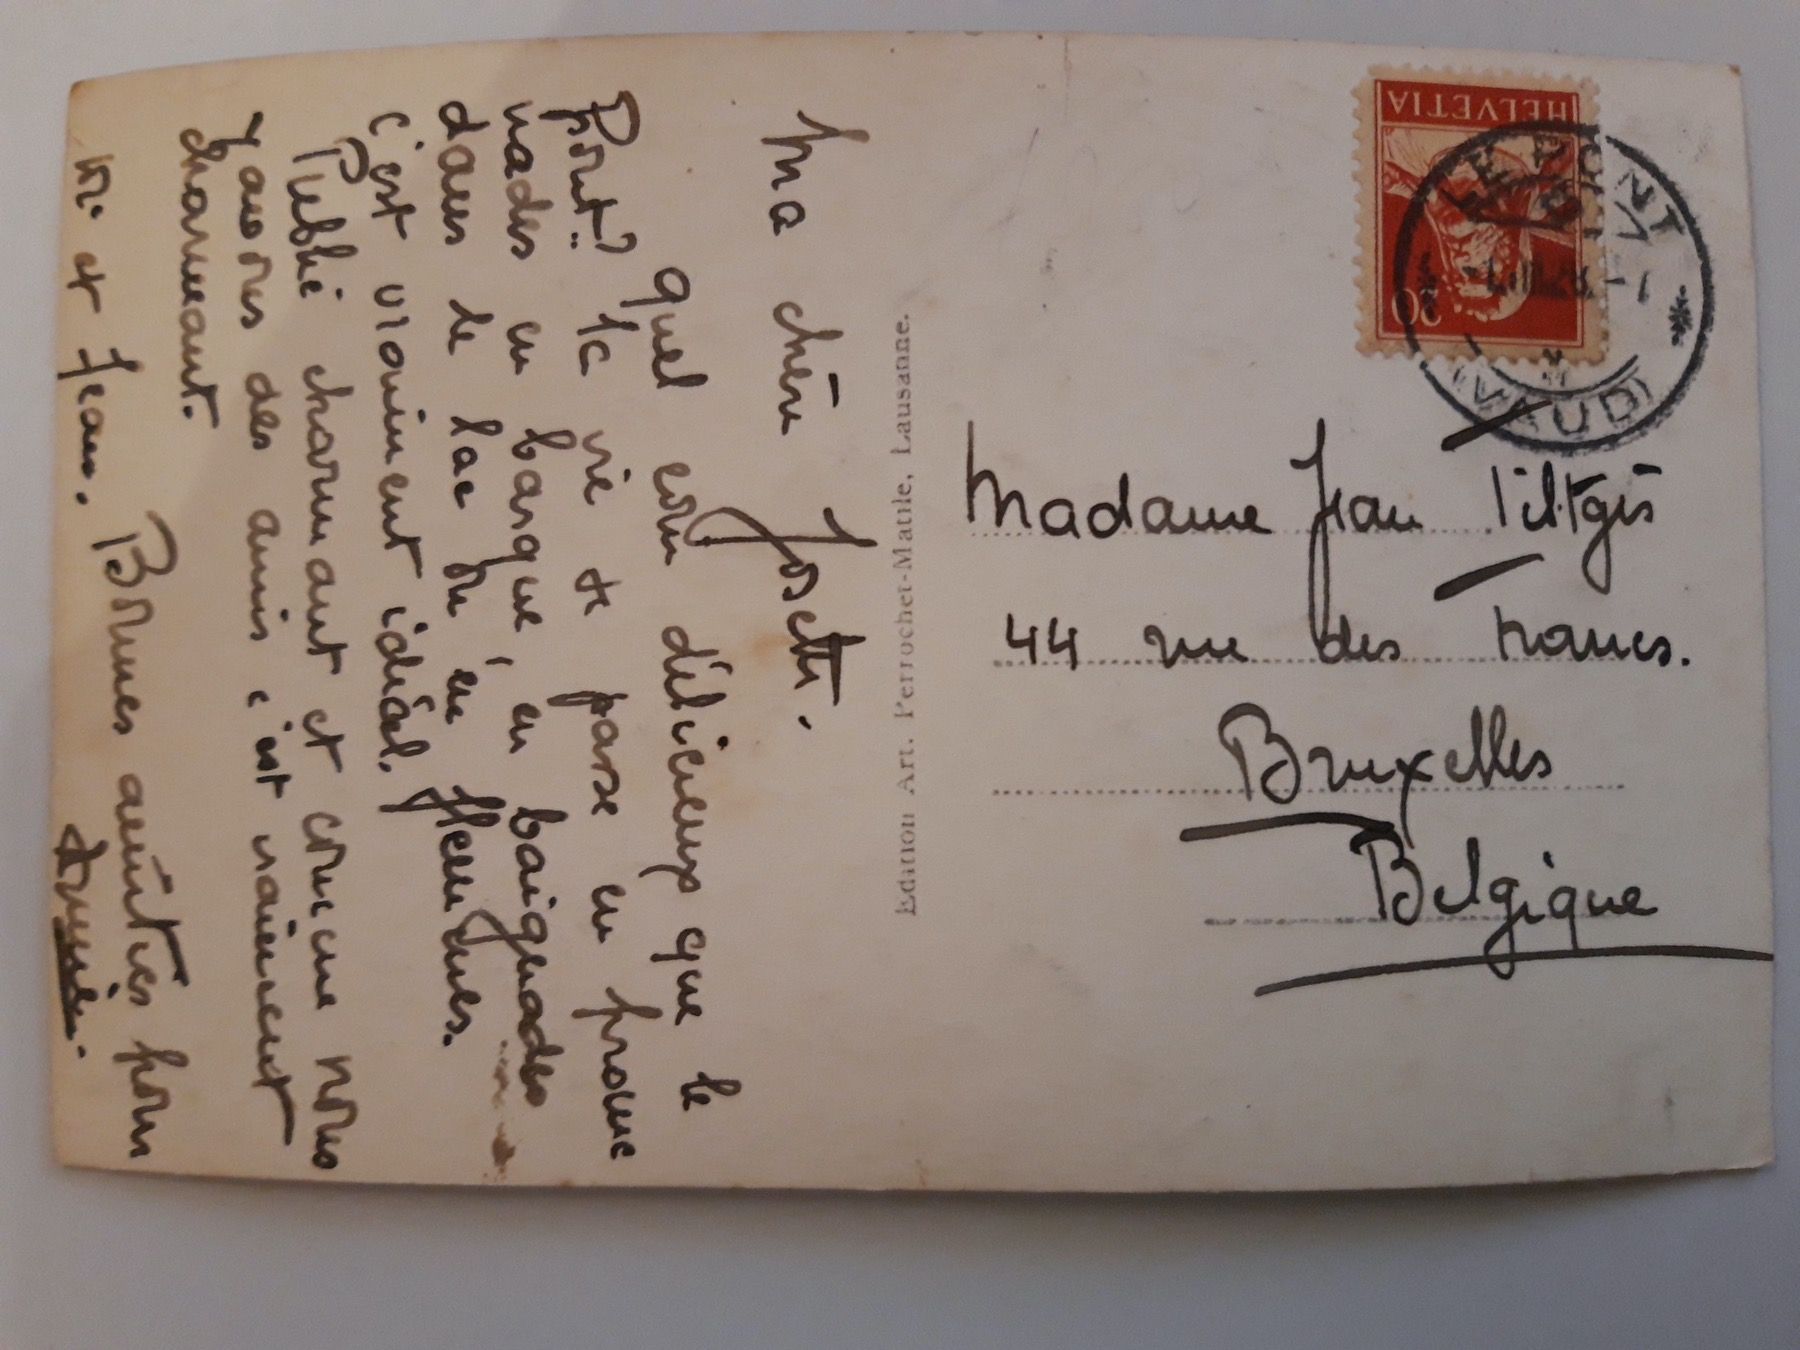 Ma chère Josette.
Quel coin délicieux que le
Pont! La vie se passe en prome
nades en barque, en baignades
dans le lac ou en flemmes.
C'est vraiment idéal.
Public charmant et comme nous
y avons des amis c'est vraiment
charmant.
Bonnes amitiés pour
et Jean.
Edition Art. Perrochet-Matile, Lausanne.
HELVETIA
20
LE PONT
(VAUD)
Madame Jean Tiltgès
44 rue des
Bruxelles
Belgique